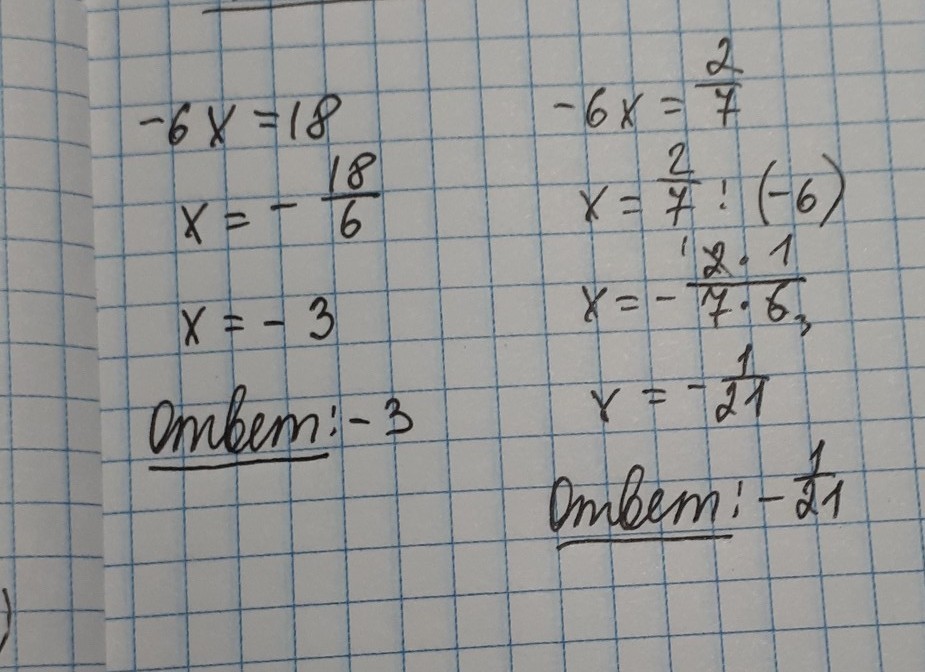 -6x = 18
x = - 18/6
x = - 3
Ответ: - 3
-6x = 2/7
x = 2/7 : (-6)
x = - 2 · 1 / 7 · 6
1
3
x = - 1/21
Ответ: - 1/21
)